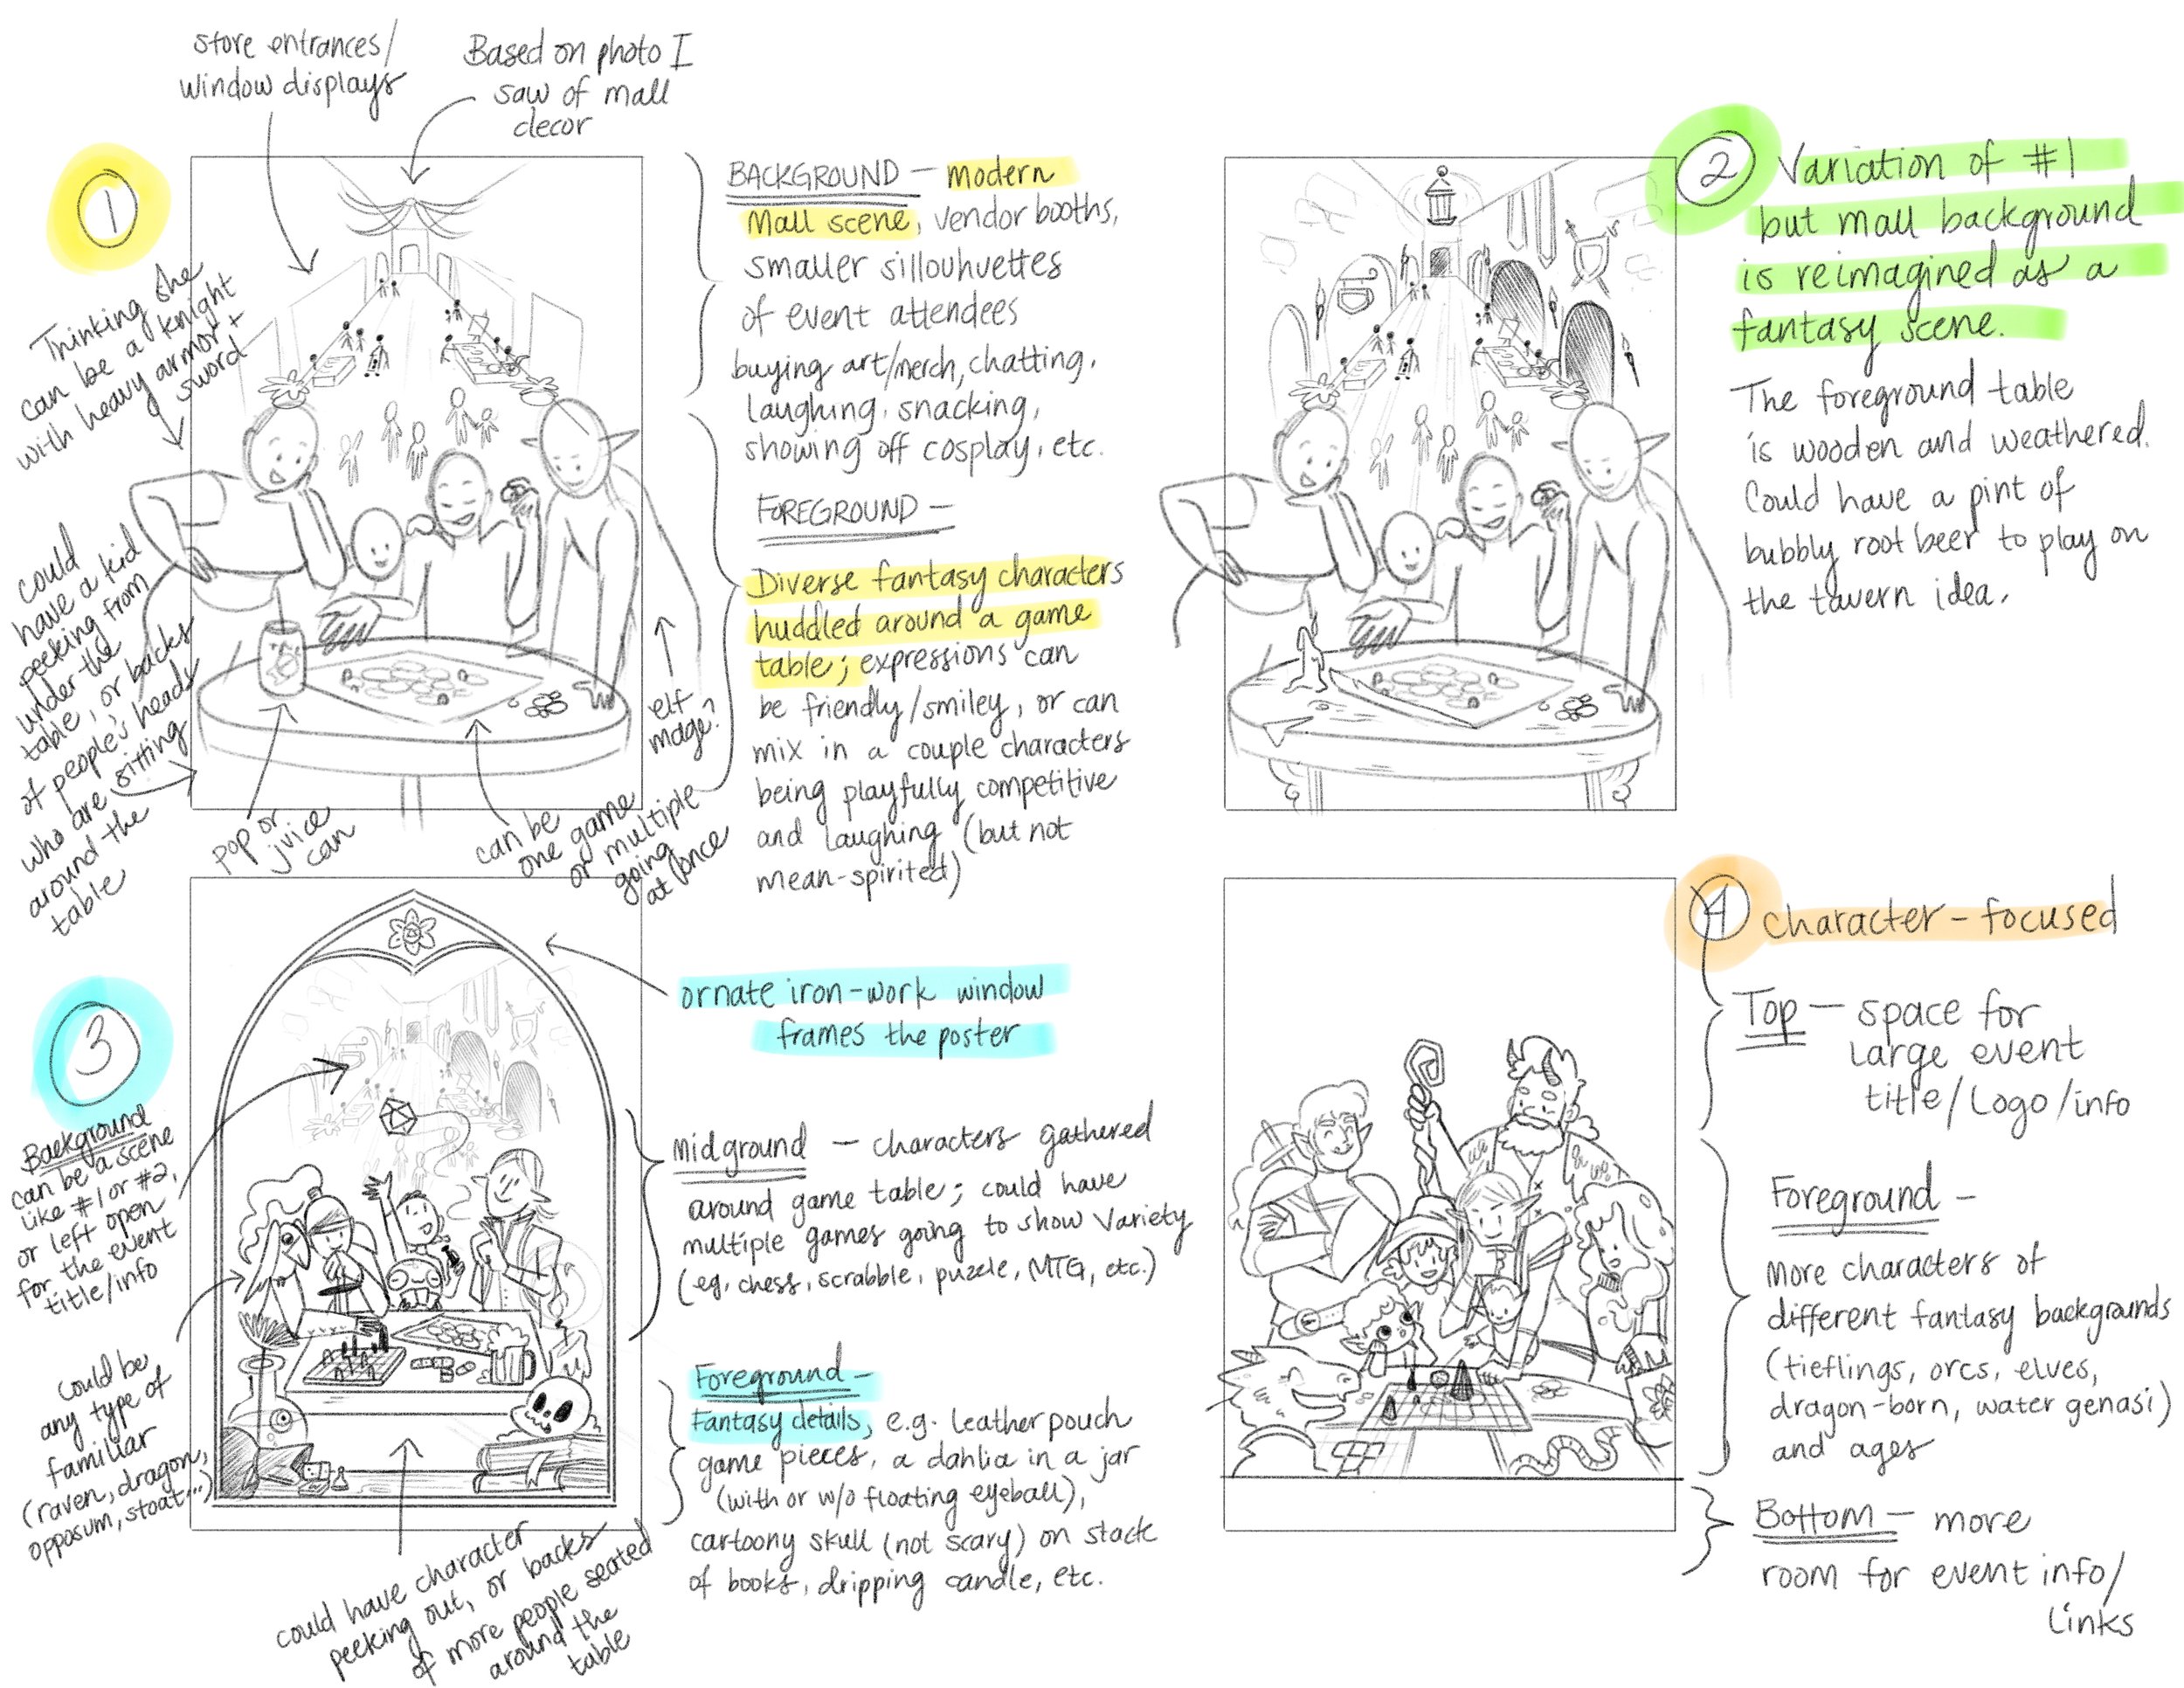 store entrances/
window displays
Based on photo I
saw of mall
decor
1
Thinking she
can be a knight
with heavy armor +
sword
could
have a kid
peeking from
under the
table, or backs
of people's heads
who are sitting
around the
table
pop or
juice
can
can be
one game
or multiple
going
at once
elf
mage?
BACKGROUND — modern
Mall scene, vendor booths,
smaller sillouhuettes
of event attendees
buying art/merch, chatting,
laughing, snacking,
showing off cosplay, etc.
FOREGROUND —
Diverse fantasy characters
huddled around a game
table; expressions can
be friendly/smiley, or can
mix in a couple characters
being playfully competitive
and laughing (but not
mean-spirited)
2 Variation of #1
but mall background
is reimagined as a
fantasy scene.
The foreground table
is wooden and weathered.
Could have a pint of
bubbly root beer to play on
the tavern idea.
3
Background
can be a scene
like #1 or #2,
or left open
for the event
title/info
could be
any type of
familiar
(raven, dragon,
opposum, stoat...)
could have character
peeking out, or backs
of more people seated
around the
table
ornate iron-work window
frames the poster
Midground — characters gathered
around game table; could have
multiple games going to show variety
(eg, chess, scrabble, puzzle, MTG, etc.)
Foreground —
Fantasy details, e.g. leather pouch
game pieces, a dahlia in a jar
(with or w/o floating eyeball),
cartoony skull (not scary) on stack
of books, dripping candle, etc.
4 character-focused
Top — space for
large event
title/logo/info
Foreground —
more characters of
different fantasy backgrounds
(tieflings, orcs, elves,
dragon-born, water genasi)
and ages
Bottom — more
room for event info/
links